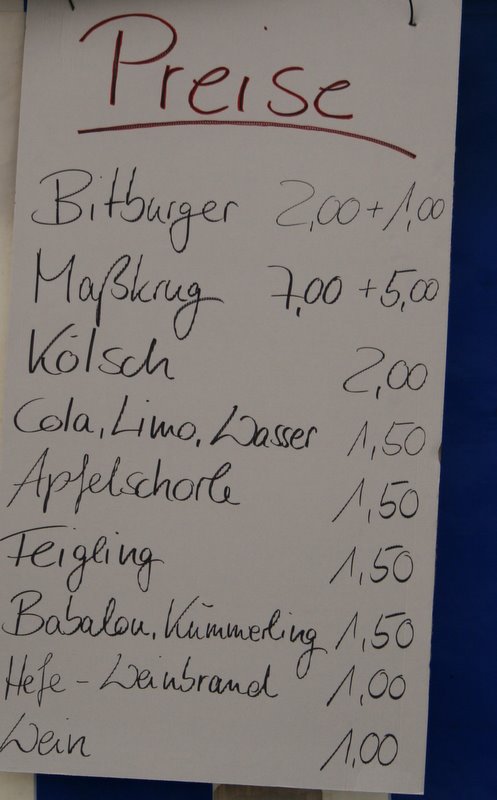 Preise
Bitburger 2,00 + 1,00
Maßkrug 7,00 + 5,00
Kölsch 2,00
Cola, Limo, Wasser 1,50
Apfelschorle 1,50
Feigling 1,50
Babalou, Kümmerling 1,50
Hefe - Weinbrand 1,00
Wein 1,00